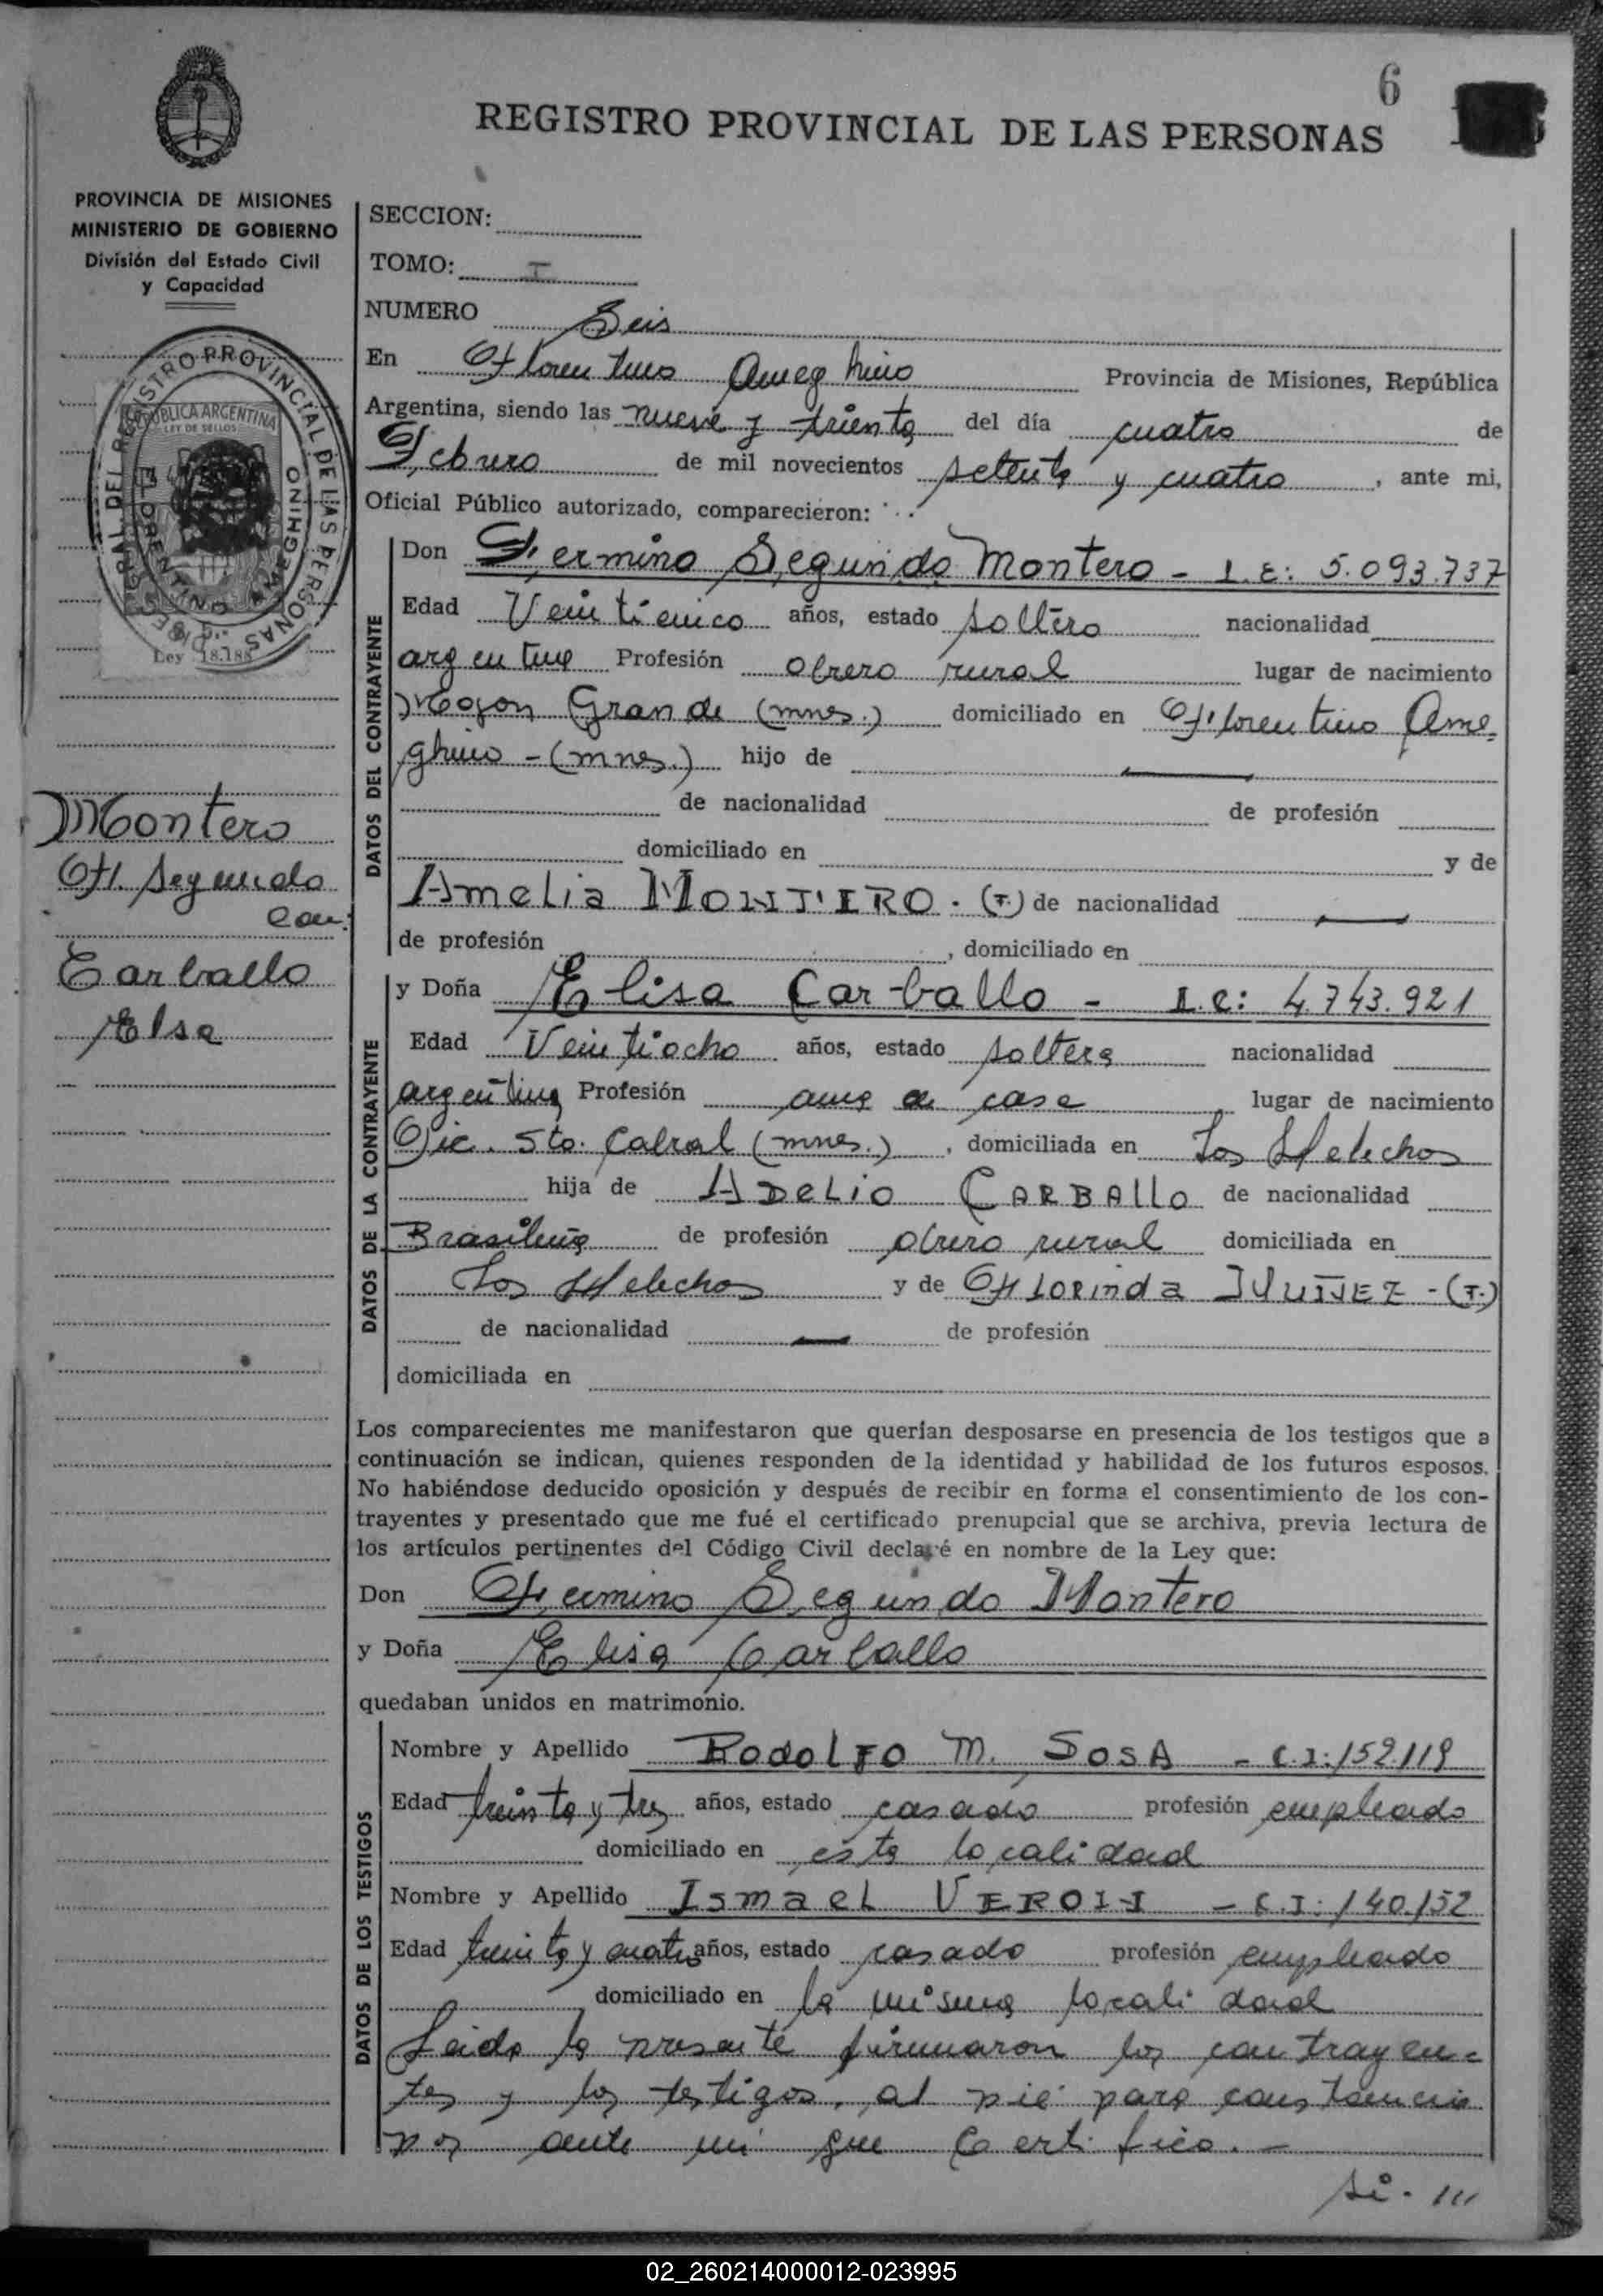 6
REGISTRO PROVINCIAL DE LAS PERSONAS
PROVINCIA DE MISIONES
MINISTERIO DE GOBIERNO
División del Estado Civil
y Capacidad
SECCION:
TOMO: I
NUMERO Seis
En Florentino Ameghino Provincia de Misiones, República
Argentina, siendo las nueve y treinta del día cuatro de
Febrero de mil novecientos setenta y cuatro, ante mi,
Oficial Público autorizado, comparecieron:
REPUBLICA ARGENTINA
LEY DE SELLOS
FLORENTINO AMEGHINO
Ley 18.188
DATOS DEL CONTRAYENTE
Don Fermino Segundo Montero - L.E: 5.093.737
Edad Veinticinco años, estado soltero nacionalidad
argentina Profesión obrero rural lugar de nacimiento
Mojon Grande (mnes.) domiciliado en Florentino Ame-
ghino - (mnes.) hijo de —
de nacionalidad de profesión
domiciliado en y de
Amelia MONTERO. (F.) de nacionalidad —
de profesión , domiciliado en
Montero
F. Segundo
con:
Carballo
Elsa
DATOS DE LA CONTRAYENTE
y Doña Elisa Carballo - L.C: 4.743.921
Edad Veintiocho años, estado soltera nacionalidad
argentina Profesión ama de casa lugar de nacimiento
Pic. Sto. Cabral (mnes.), domiciliada en Los Helechos
hija de ADELIO CARBALLO de nacionalidad
Brasileña de profesión obrero rural domiciliada en
Los Helechos y de FLORINDA NUÑEZ - (F.)
de nacionalidad — de profesión
domiciliada en
Los comparecientes me manifestaron que querían desposarse en presencia de los testigos que a
continuación se indican, quienes responden de la identidad y habilidad de los futuros esposos.
No habiéndose deducido oposición y después de recibir en forma el consentimiento de los con-
trayentes y presentado que me fué el certificado prenupcial que se archiva, previa lectura de
los artículos pertinentes del Código Civil declaré en nombre de la Ley que:
Don Fermino Segundo Montero
y Doña Elisa Carballo
quedaban unidos en matrimonio.
DATOS DE LOS TESTIGOS
Nombre y Apellido RODOLFO M. SOSA - C.I: 159.119
Edad treinta y tres años, estado casado profesión empleado
domiciliado en esta localidad
Nombre y Apellido ISMAEL VERON - C.I: 140.152
Edad treinta y cuatro años, estado casado profesión empleado
domiciliado en la misma localidad
Leida la presente firmaron los contrayen-
tes y los testigos, al pié para constancia
por ante mi que Certifico. -
02_260214000012-023995